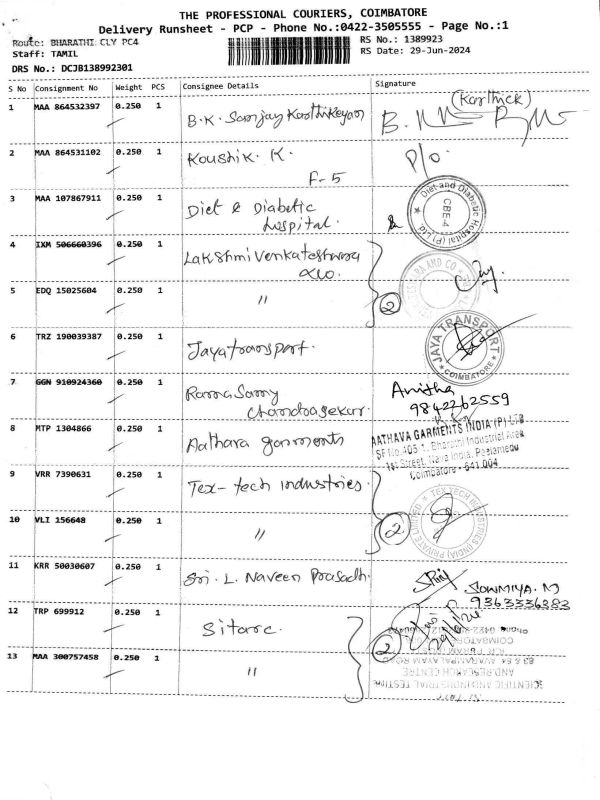 THE PROFESSIONAL COURIERS, COIMBATORE
Delivery Runsheet - PCP - Phone No.:0422-3505555 - Page No.:1
Route: BHARATHI CLY PC4
RS No.: 1389923
Staff: TAMIL
RS Date: 29-Jun-2024
DRS No.: DCJB138992301
S No Consignment No Weight PCS Consignee Details Signature
1 MAA 864532397 0.250 1 B.K. Sanjay Karthikeyan (Karthick)
2 MAA 864531102 0.250 1 Koushik. K. P/o.
F-5
3 MAA 107867911 0.250 1 Diet & Diabetic
hospital.
Diet and Diabetic Hospital (P) Ltd. CBE-4
4 IXM 506660396 0.250 1 Lakshmi Venkateshwara
&Co.
5 EDQ 15025604 0.250 1 " 2
6 TRZ 190039387 0.250 1 Jayatransport.
JAYA TRANSPORT COIMBATORE
7 GGN 910924360 0.250 1 Ramasamy Anitha
Chandrasekar. 9842262559
8 MTP 1304866 0.250 1 Aathava garments
AATHAVA GARMENTS INDIA (P) LTD
SF No.405 1, Bharathi Industrial Area
1st Street, Nava India, Peelamedu
Coimbatore - 641 004.
9 VRR 7390631 0.250 1 Tex-tech industries.
TEX TECH INDUSTRIES (INDIA) PRIVATE LIMITED
10 VLI 156648 0.250 1 " 2
11 KRR 50030607 0.250 1 Sri. L. Naveen Prasadh.
SOWMIYA. M
9363336383
12 TRP 699912 0.250 1 Sitarc. 2
13 MAA 300757458 0.250 1 "
COIMBATORE
83 & 84 AVARAMPALAYAM ROAD
AND RESEARCH CENTRE
SCIENTIFIC AND INDUSTRIAL TESTING